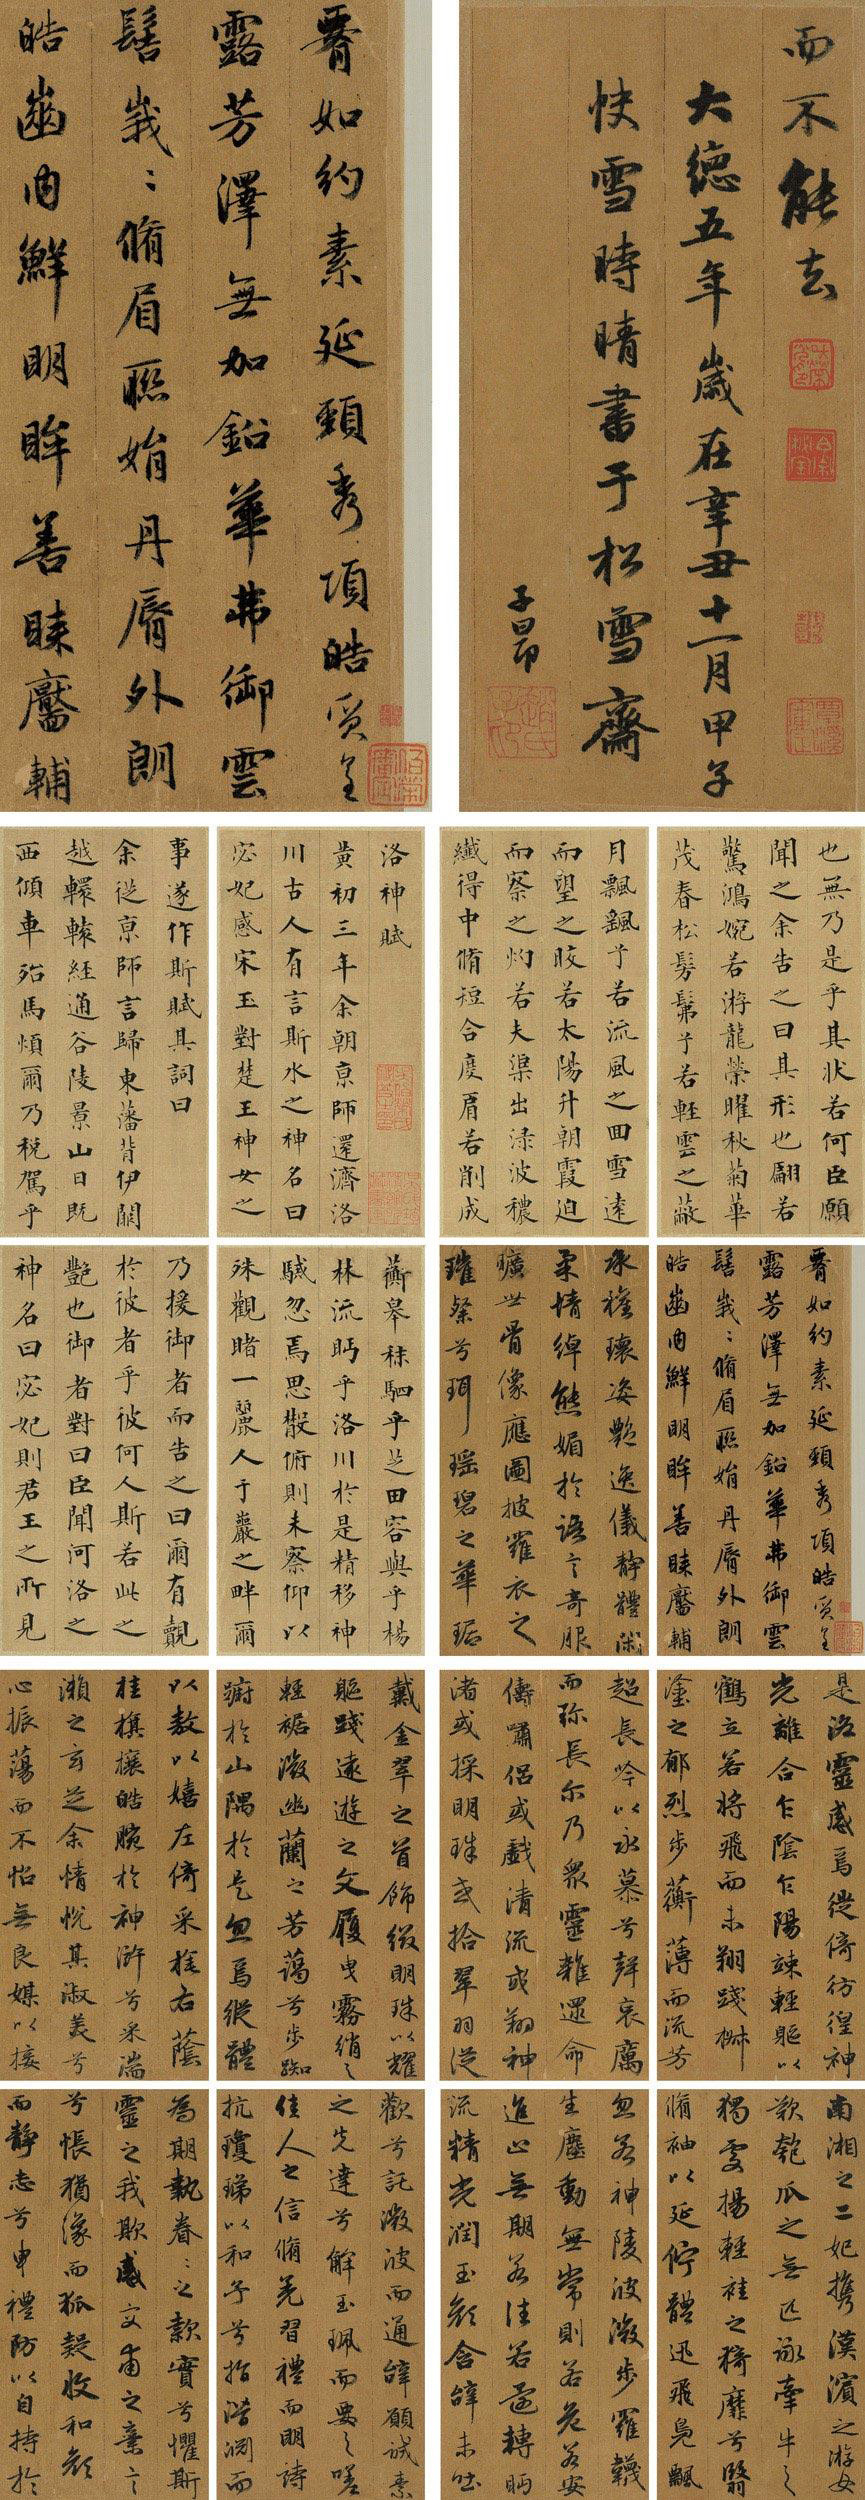 而不能去
大德五年歲在辛丑十一月甲子
快雪時晴書于松雪齋
子昂
署如約素延頸秀項皓質呈
露芳澤無加鉛華弗御雲
髻峩〻脩眉聯娟丹脣外朗
皓齒内鮮明眸善睞靨輔
洛神賦
黃初三年余朝京師還濟洛
川古人有言斯水之神名曰
宓妃感宋玉對楚王神女之
事遂作斯賦其詞曰
余從京師言歸東藩背伊闕
越轘轅經通谷陵景山日既
西傾車殆馬煩爾乃稅駕乎
蘅皋秣駟乎芝田容與乎楊
林流眄乎洛川於是精移神
駭忽焉思散俯則未察仰以
殊觀睹一麗人于巖之畔爾
乃援御者而告之曰爾有覿
於彼者乎彼何人斯若此之
艷也御者對曰臣聞河洛之
神名曰宓妃則君王之所見
也無乃是乎其狀若何臣願
聞之余告之曰其形也翩若
驚鴻婉若游龍榮曜秋菊華
茂春松髣髴兮若輕雲之蔽
月飄飖兮若流風之回雪遠
而望之皎若太陽升朝霞迫
而察之灼若夫渠出淥波穠
纖得中脩短合度肩若削成
署如約素延頸秀項皓質呈
露芳澤無加鉛華弗御雲
髻峩〻脩眉聯娟丹脣外朗
皓齒内鮮明眸善睞靨輔
承權瓌姿艷逸儀靜體閑
柔情綽態媚於語言奇服
曠世骨像應圖披羅衣之
璀粲兮珥瑶碧之華琚
戴金翠之首飾綴明珠以耀
軀踐遠遊之文履曳霧綃之
輕裾微幽蘭之芳藹兮步踟
躕於山隅於是忽焉縱體
以敖以嬉左倚采旄右蔭
桂旗攘皓腕於神滸兮采湍
瀨之玄芝余情悅其淑美兮
心振蕩而不怡無良媒以接
歡兮託微波而通辭願誠素
之先達兮解玉珮而要之嗟
佳人之信脩羌習禮而明詩
抗瓊珶以和予兮指潛淵而
為期執眷〻之款實兮懼斯
靈之我欺感交甫之棄言
兮悵猶豫而狐疑收和顏
而靜志兮申禮防以自持於
是洛靈感焉徙倚彷徨神
光離合乍陰乍陽竦輕軀以
鶴立若將飛而未翔踐椒
塗之郁烈步蘅薄而流芳
超長吟以永慕兮聲哀厲
而弥長尔乃眾靈雜遝命
儔嘯侶或戲清流或翔神
渚或採明珠或拾翠羽從
南湘之二妃携漢濱之游女
歎匏瓜之無匹詠牽牛之
獨處揚輕袿之猗靡兮翳
脩袖以延佇體迅飛鳧飄
忽若神陵波微步羅韈
生塵動無常則若危若安
進止無期若往若還轉眄
流精光潤玉顏含辭未吐